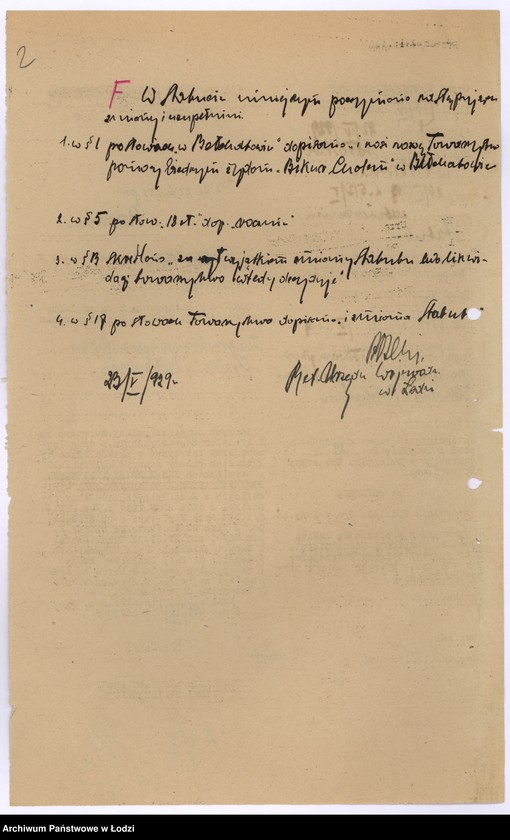 2
F W Statucie niniejszym poczyniono następujące
zmiany i uzupełnienia
1. w § 1 po słowach „w Bełchatowie" dopisano „i nosi nazwę Towarzystwo
pomocy biednym żydom „Bikur Cholim" w Bełchatowie
2. w § 5 po słow. „18 st." dop.
3. w § 13 skreślono „za wyjątkiem zmiany Statutu lub likwi-
dacji Towarzystwa wtedy decyduje"
4. w § 17 po słowach Towarzystwa dopisano „i zmiana Statutu"
23/V/929 r.
Ref. Urzędu Wojewódz.
w Łodzi
Archiwum Państwowe w Łodzi